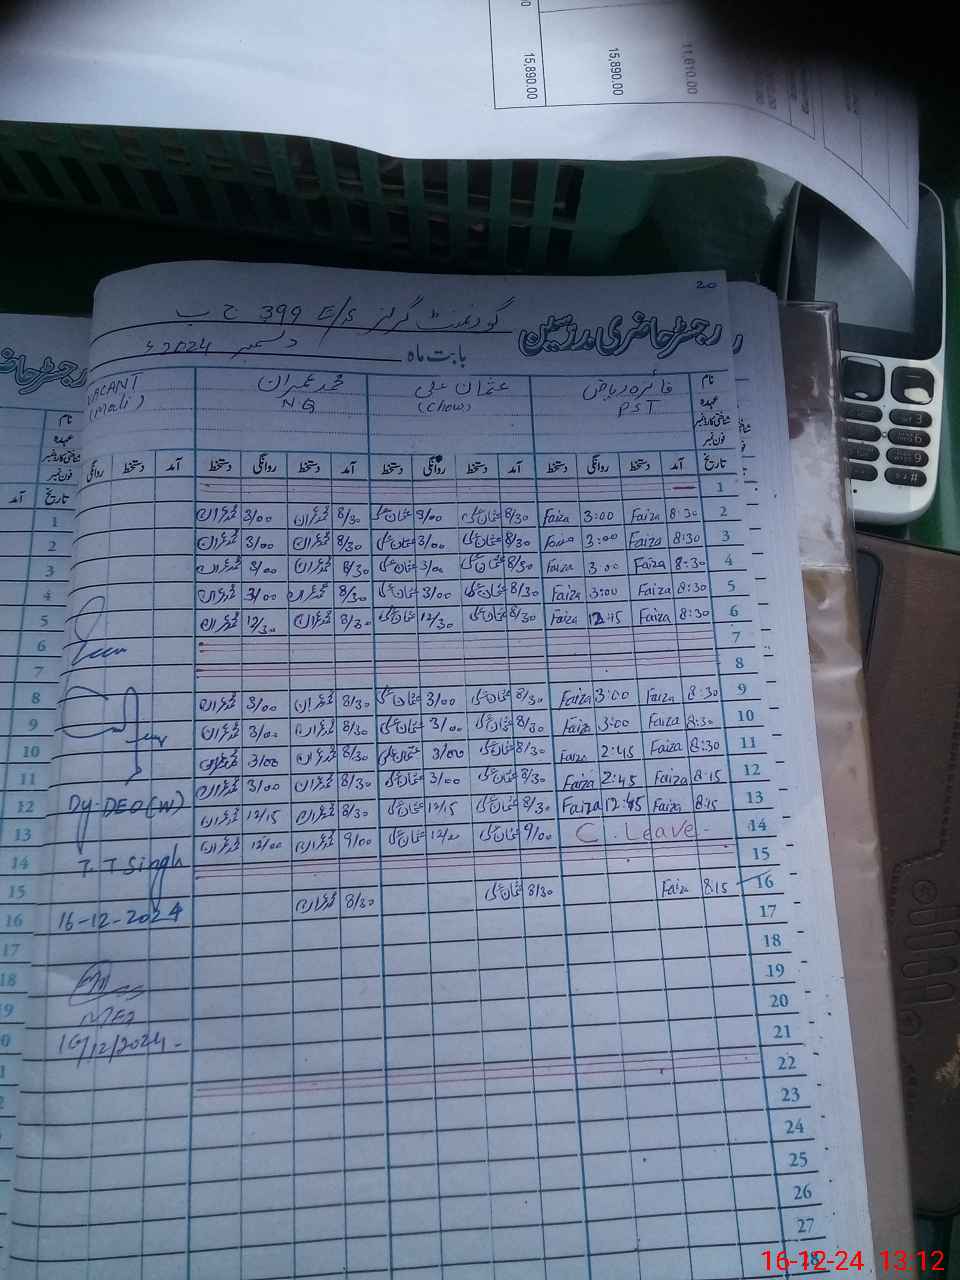 15,890.00
15,890.00
11,610.00
20
رجسٹر حاضری مدرسین گورنمنٹ گرلز E/S 399 ج ب
بابت ماہ دسمبر 2024ء
نام فائزہ ریاض عثمان علی محمد عمران VACANT
عہدہ PST (Chow) N.Q (Mali)
شناختی کارڈ نمبر
فون نمبر
تاریخ آمد دستخط روانگی دستخط آمد دستخط روانگی دستخط آمد دستخط روانگی دستخط آمد دستخط روانگی
1
2 8:30 Faiza 3:00 Faiza 8/30 عثمان علی 3/00 عثمان علی 8/30 محمد عمران 3/00 محمد عمران
3 8:30 Faiza 3:00 Faiza 8/30 عثمان علی 3/00 عثمان علی 8/30 محمد عمران 3/00 محمد عمران
4 8:30 Faiza 3:00 Faiza 8/30 عثمان علی 3/00 عثمان علی 8/30 محمد عمران 3/00 محمد عمران
5 8:30 Faiza 3:00 Faiza 8/30 عثمان علی 3/00 عثمان علی 8/30 محمد عمران 3/00 محمد عمران
6 8:30 Faiza 12:45 Faiza 8/30 عثمان علی 12/30 عثمان علی 8/30 محمد عمران 12/30 محمد عمران
7
8
9 8:30 Faiza 3:00 Faiza 8/30 عثمان علی 3/00 عثمان علی 8/30 محمد عمران 3/00 محمد عمران
10 8:30 Faiza 3:00 Faiza 8/30 عثمان علی 3/00 عثمان علی 8/30 محمد عمران 3/00 محمد عمران
11 8:30 Faiza 2:45 Faiza 8/30 عثمان علی 3/00 عثمان علی 8/30 محمد عمران 3/00 محمد عمران
12 8:15 Faiza 2:45 Faiza 8/30 عثمان علی 3/00 عثمان علی 8/30 محمد عمران 3/00 محمد عمران
13 8:15 Faiza 12:45 Faiza 8/30 عثمان علی 12/15 عثمان علی 8/30 محمد عمران 12/15 محمد عمران
14 C. Leave 9/00 عثمان علی عثمان علی 9/00 محمد عمران 12/00 محمد عمران
15
16 8:15 Faiza 8/30 عثمان علی 8/30 محمد عمران
17
18
19
20
21
22
23
24
25
26
27
28
Dy. DEO (W)
T. T Singh
16-12-2024
16/12/2024
رجسٹر حاضری
نام
عہدہ
شناختی کارڈ نمبر
فون نمبر
تاریخ آمد
1
2
3
4
5
6
7
8
9
10
11
12
13
14
15
16
17
18
16-12-24 13:12